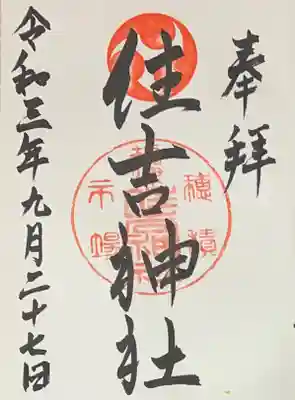 奉拝
住吉神社
穂積
市場
令和三年九月二十七日